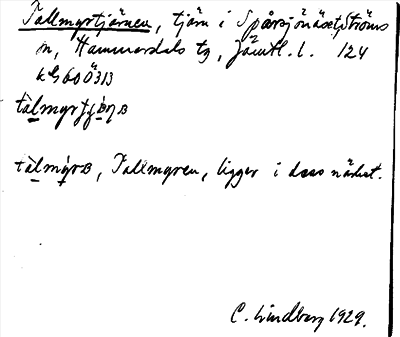 Tallmyrtjärnen, tjärn i Spårsjönäset, Ströms
sn, Hammerdals tg, Jämtl. l. 124
tàlmyr
tàlmy̗rɐ, Tallmyren, ligger i dess närhet.
C. Lindberg 1929.